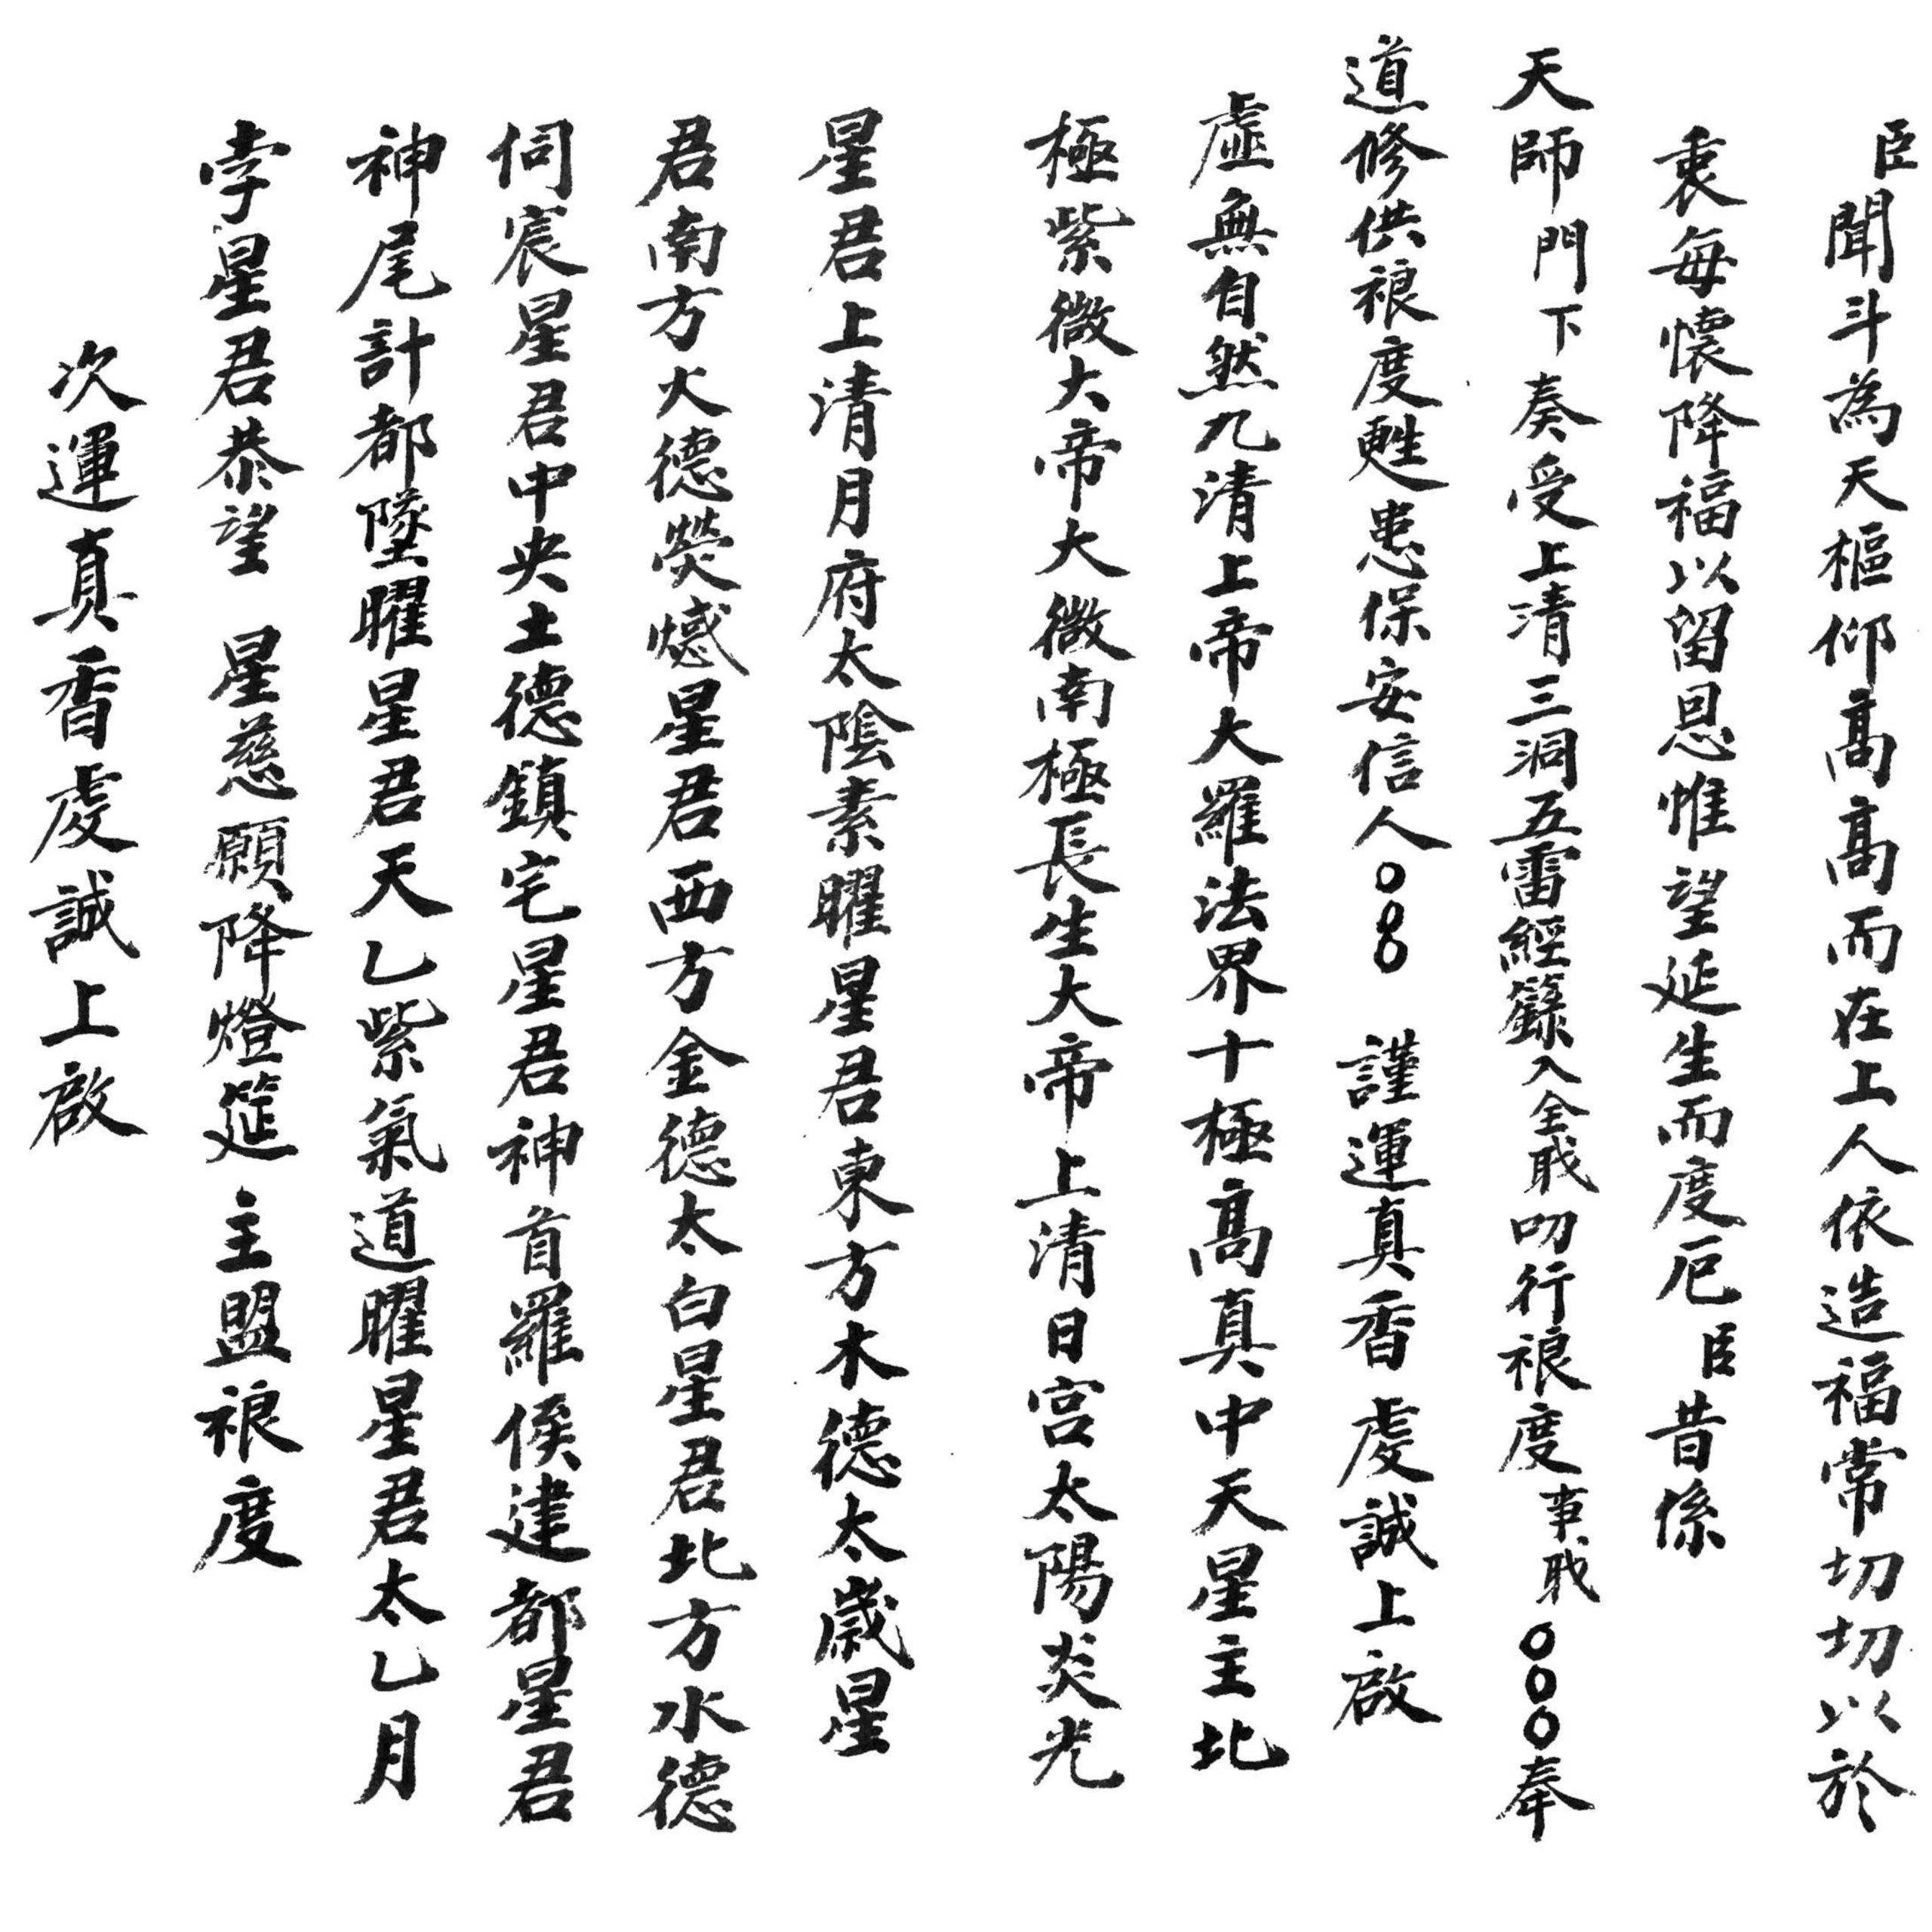 臣聞斗為天樞仰高高而在上人依造福常切切以於
衷每懷降福以留恩惟望延生而度厄臣昔係
天師門下奏受上清三洞五雷經籙入全戢叨行禳度事戢○○○奉
道修供禳度甦患保安信人○○○謹運真香虔誠上啟
虛無自然九清上帝大羅法界十極高真中天星主北
極紫微大帝大微南極長生大帝上清日宮太陽炎光
星君上清月府太陰素曜星君東方木德太歲星
君南方火德熒憾星君西方金德太白星君北方水德
伺宸星君中央土德鎮宅星君神首羅侯建都星君
神尾計都墜曜星君天乙紫氣道曜星君太乙月
孛星君恭望星慈願降燈筵主盟禳度
次運真香虔誠上啟